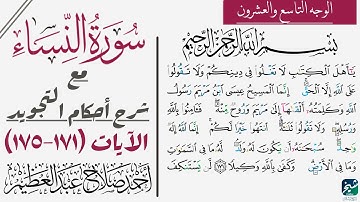 الوجه التاسع والعشرون
سورة النساء
مع
شرح أحكام التجويد
الآيات (١٧١-١٧٥)
أحمد صلاح عبد العظيم
بسم الله الرحمن الرحيم
يَٰٓأَهْلَ ٱلْكِتَٰبِ لَا تَغْلُوا۟ فِى دِينِكُمْ وَلَا تَقُولُوا۟
عَلَى ٱللَّهِ إِلَّا ٱلْحَقَّ إِنَّمَا ٱلْمَسِيحُ عِيسَى ٱبْنُ مَرْيَمَ رَسُولُ
ٱللَّهِ وَكَلِمَتُهُۥٓ أَلْقَىٰهَآ إِلَىٰ مَرْيَمَ وَرُوحٌ مِّنْهُ فَـَٔامِنُوا۟ بِٱللَّهِ
وَرُسُلِهِۦ وَلَا تَقُولُوا۟ ثَلَٰثَةٌ ٱنتَهُوا۟ خَيْرًا لَّكُمْ إِنَّمَا ٱللَّهُ إِلَٰهٌ
وَٰحِدٌ سُبْحَٰنَهُۥٓ أَن يَكُونَ لَهُۥ وَلَدٌ لَّهُۥ مَا فِى ٱلسَّمَٰوَٰتِ
وَمَا فِى ٱلْأَرْضِ وَكَفَىٰ بِٱللَّهِ وَكِيلًا ١٧١ لَّن يَسْتَنكِفَ